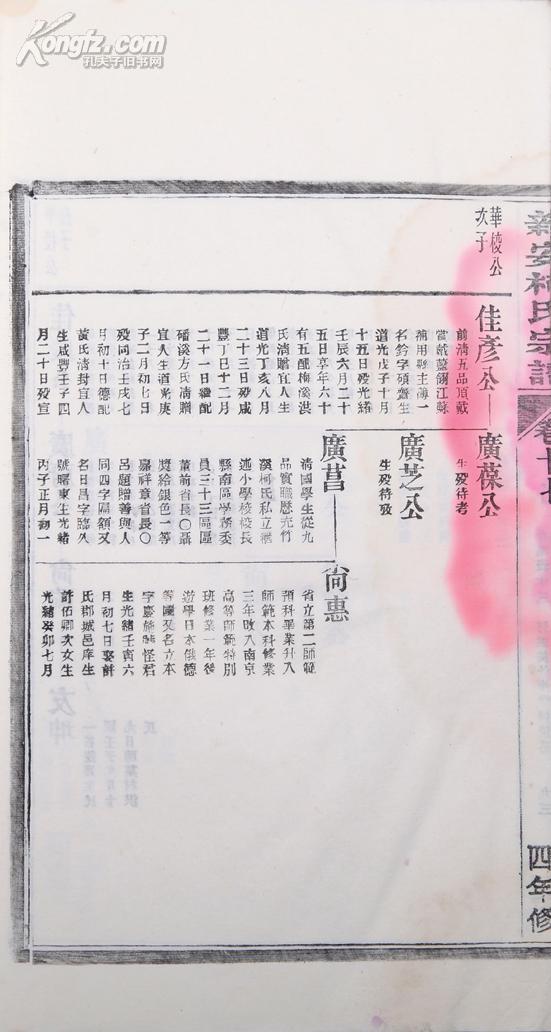 Kongfz.com
孔夫子旧书网
新安柯氏宗譜
卷十七
四年修
華梭公
次子
佳彥公
前清五品頂戴
嘗
江蘇
補用縣主薄一
名鈴字碩齋生
道光戊子十月
十五日歿光緒
壬辰六月二十
五日享年六十
有五配梅溪洪
氏清贈宜人生
道光丁亥八月
二十三日歿咸
豐丁巳十二月
二十一日繼配
磻溪方氏清贈
宜人生道光庚
子二月初七日
歿同治壬戌七
月初十日德配
黃氏清封宜人
生咸豐壬子四
月二十日歿宣
廣葆公
生歿待考
廣芝公
生歿待攷
廣菖
清國學生從九
品實職歷充竹
溪柯氏私立
述小學校校長
縣南區學務委
員三十三區區
董前省長〇聶
獎給銀色一等
嘉祥章省長〇
呂題贈善與人
同四字匾額又
名日昌字臨久
號曙東生光緒
丙子正月初一
尙惠
省立第二師範
預科畢業升入
師範本科修業
三年改入南京
高等師範特別
班修業一年後
遊學日本俄德
等國又名立本
字慶
怪君
生光緒壬寅六
月初七日娶許
氏郡城邑庠生
許伍卿次女生
光緒癸卯七月